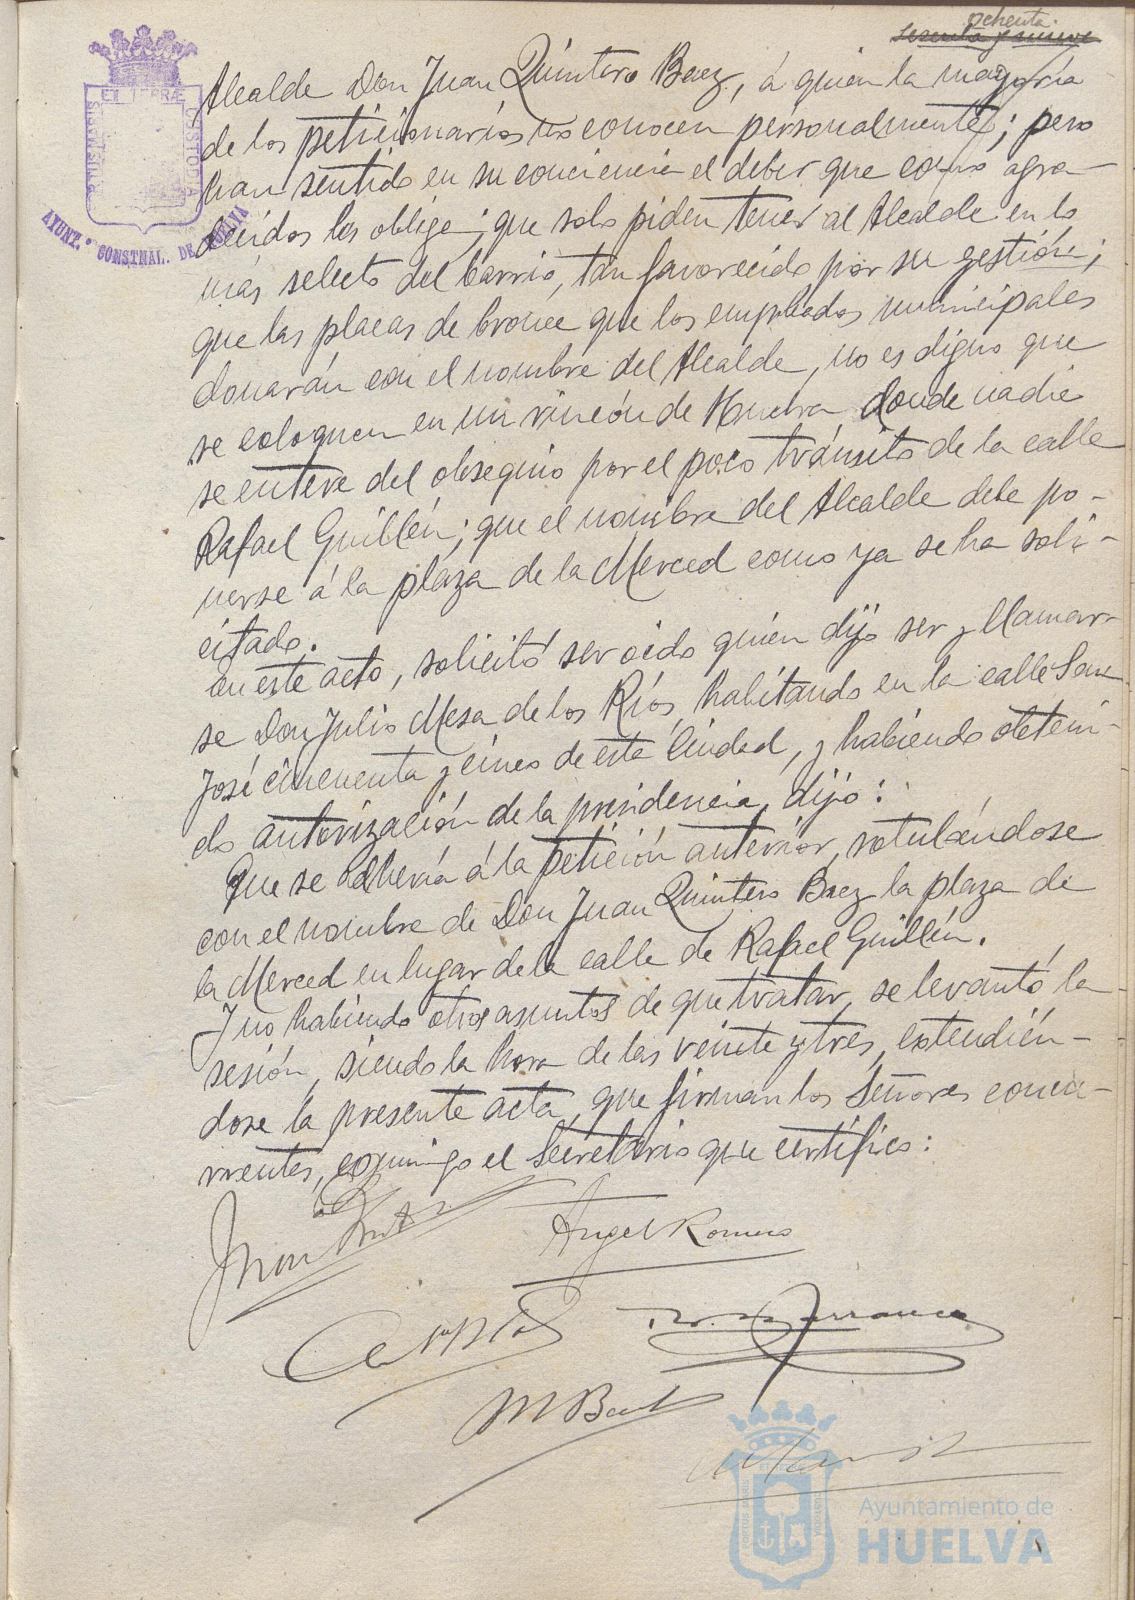 ochenta
sesenta y nueve
Alcalde Don Juan Quintero Baez, á quien la mayoría
de los peticionarios no conocen personalmente; pero
han sentido en su conciencia el deber que como agra-
decidos les obliga; que solo piden tener al Alcalde en lo
más selecto del barrio, tan favorecido por su gestión;
que las placas de bronce que los empleados municipales
donarán con el nombre del Alcalde, no es digno que
se coloquen en un rincón de Huelva, donde nadie
se entere del obsequio por el poco tránsito de la calle
Rafael Guillén; que el nombre del Alcalde debe po-
nerse á la plaza de la Merced como ya se ha soli-
citado.
En este acto, solicitó ser oido quien dijo ser y llamar-
se Don Julio Mesa de los Ríos, habitando en la calle San
José cincuenta y cinco de esta Ciudad, y habiendo obteni-
do autorización de la presidencia, dijo:
Que se adhería á la petición anterior, rotulándose
con el nombre de Don Juan Quintero Baez la plaza de
la Merced en lugar de la calle de Rafael Guillén.
Y no habiendo otros asuntos de que tratar, se levantó la
sesión, siendo la hora de las veinte y tres, extendién-
dose la presente acta, que firman los Señores concu-
rrentes, conmigo el Secretario que certifico:
Juan
Angel Romero
M Baut
PORTUS MARIS
ET TERRÆ
CUSTODIA
AYUNT.º CONSTNAL. DE HUELVA
Ayuntamiento de
HUELVA